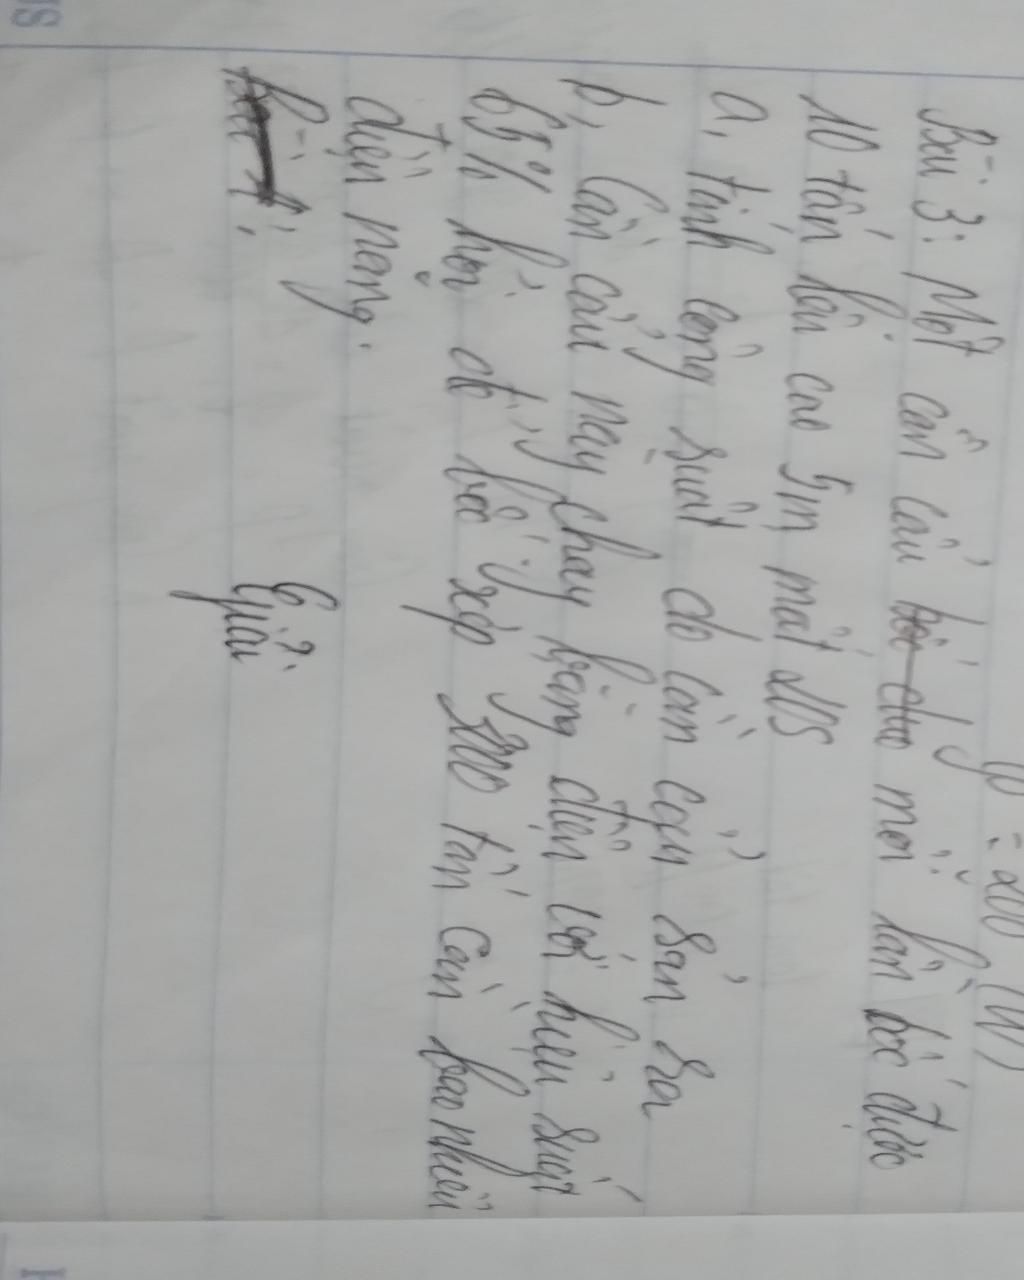 P = 200 (W)
Bài 3: Một cần cẩu mỗi lần bốc được
10 tấn lên cao 5m mất 20s
a, tính công suất do cần cẩu sản ra
b, Cần cẩu này chạy bằng điện với hiệu suất
65% hỏi để bốc xếp 300 tấn cần bao nhiêu
điện năng.
Giải